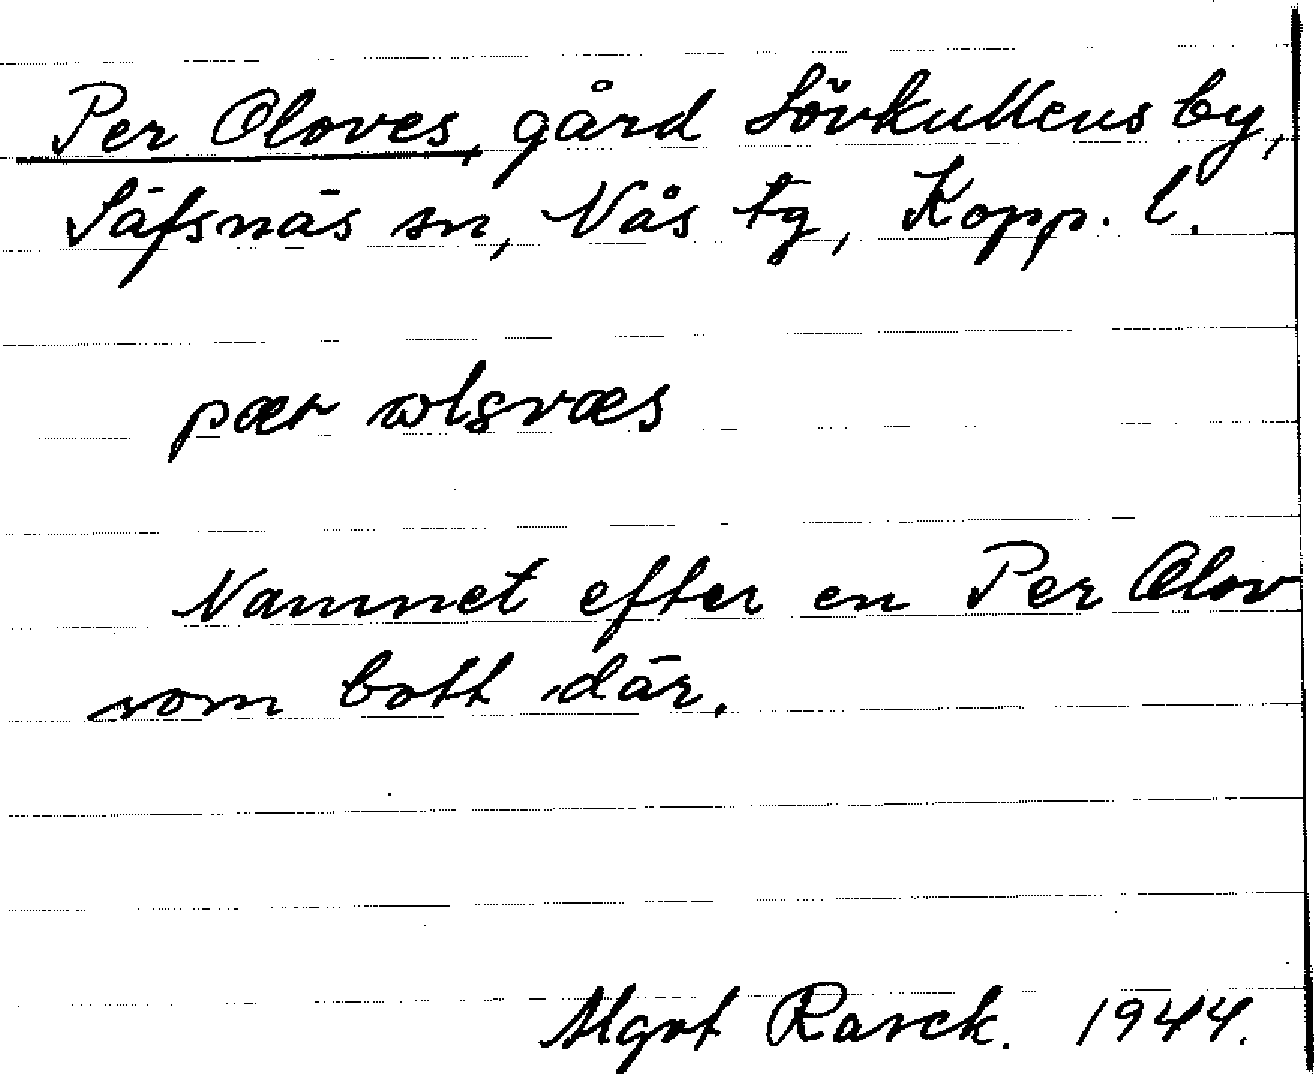 Per Oloves, gård Lövkullens by,
Säfsnäs sn, Nås tg, Kopp. l.
pær
Namnet efter en Per Olov
som bott där.
Mgst Rarck. 1944.